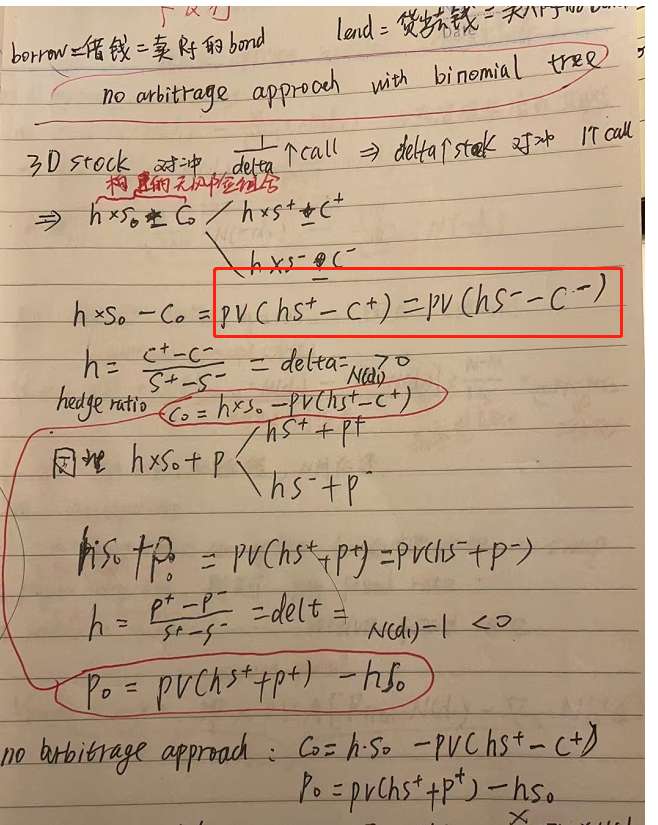 borrow=借钱=卖所的bond lend=贷出去钱=买
no arbitrage approach with binomial tree
3D stock 对冲 1/delta 个call ⇒ delta个stock 对冲 1个call
构建的无风险组合
⇒ h×S₀ - C₀ h×S⁺ - C⁺
h×S⁻ - C⁻
h×S₀ - C₀ = PV(hS⁺ - C⁺) = PV(hS⁻ - C⁻)
h = (C⁺-C⁻)/(S⁺-S⁻) = delta = N(d₁) >0
hedge ratio C₀ = h×S₀ - PV(hS⁺ - C⁺)
同理 h×S₀ + P hS⁺ + P⁺
hS⁻ + P⁻
hS₀ + P₀ = PV(hS⁺ + P⁺) = PV(hS⁻ + P⁻)
h = (P⁺ - P⁻)/(S⁺ - S⁻) = delt = N(d₁)-1 <0
P₀ = PV(hS⁺ + P⁺) - hS₀
no arbitrage approach : C₀ = h·S₀ - PV(hS⁺ - C⁺)
P₀ = PV(hS⁺ + P⁺) - hS₀